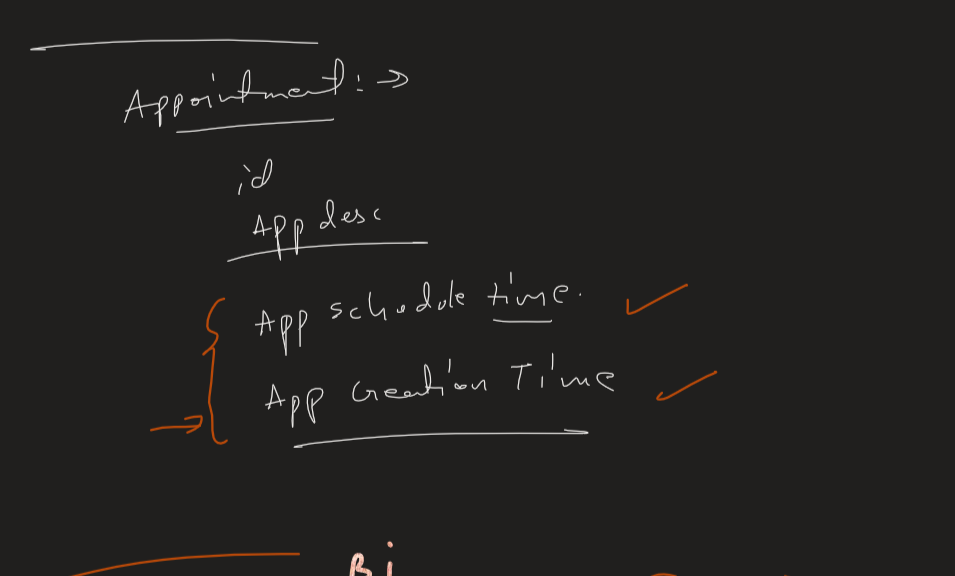 Appointment :->
id
App desc
App schedule time.
App creation Time
Bi